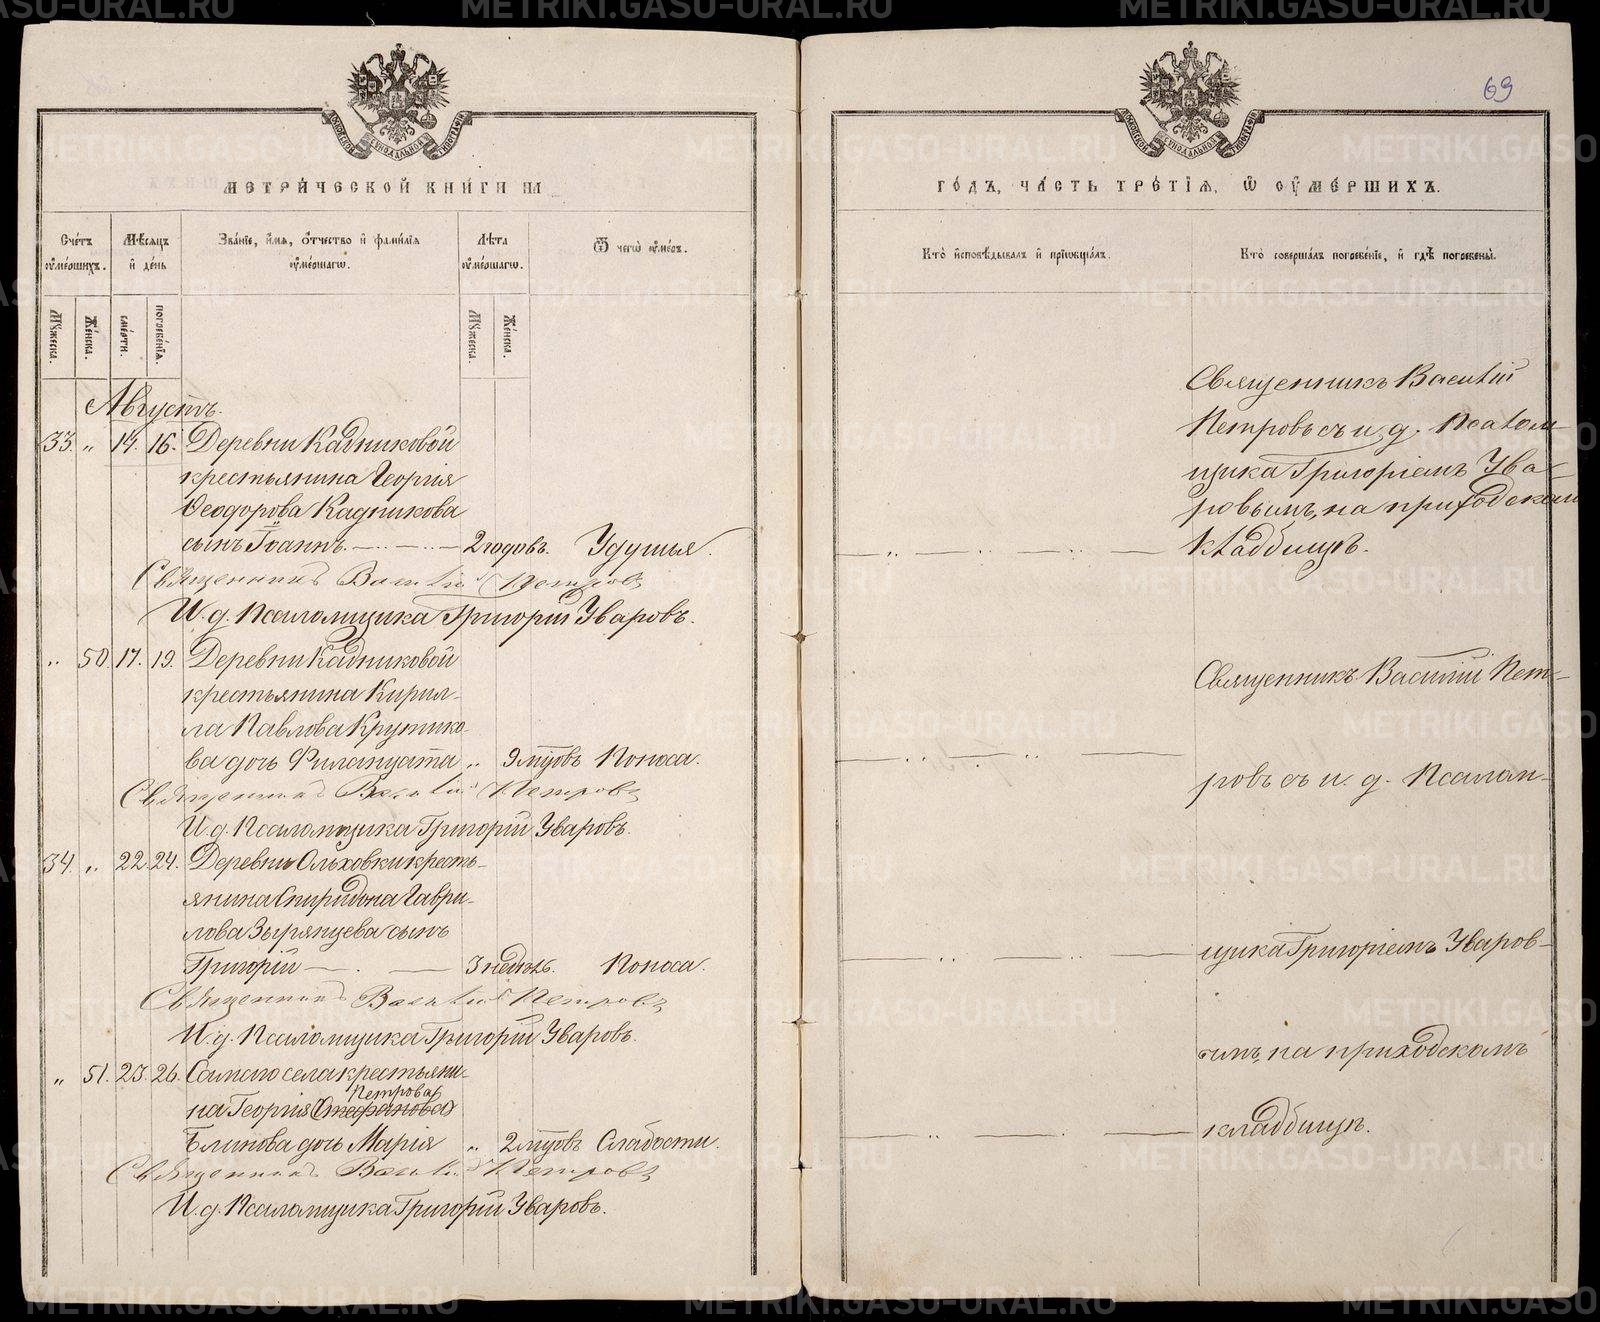 69
МЕТРИ́ЧЕСКОЙ КНИ́ГИ НА
Сче́тъ ᲂумéршихъ.
Мѣсяцъ и де́нь
Зва́нїе, и́мя, Ѻ́тчество и фами́лїя ᲂумéршагѡ.
Лѣта ᲂумéршагѡ.
Ѿ чегѡ̀ ᲂу́меръ.
Мꙋ́жеска.
Же́нска.
сме́рти.
погребе́нїя.
Мꙋ́жеска.
Же́нска.
Августъ.
33. „ 14. 16. Деревни Кадниковой
крестьянина Георгія
Ѳеодорова Кадникова
сынъ Іоаннъ. 2 годовъ. Удушья.
Священникъ Василій Петровъ
И. д. Псаломщика Григорій Уваровъ.
„ 50. 17. 19. Деревни Кадниковой
крестьянина Кирил-
ла Павлова Крутико-
ва дочь Филануата „ 9 мцовъ Поноса.
Священникъ Василій Петровъ
И. д. Псаломщика Григорій Уваровъ.
34. „ 22. 24. Деревни Ольховки кресть-
янина Спиридона Гаври-
лова Зырянцева сынъ
Григорій 3 недѣль. Поноса.
Священникъ Василій Петровъ
И. д. Псаломщика Григорій Уваровъ.
„ 51. 23. 26. Самого села крестьяни-
Петрова
на Георгія (Стефанова)
Блинова дочь Марія „ 2 мцовъ Слабости.
Священникъ Василій Петровъ
И. д. Псаломщика Григорій Уваровъ.
ГО́ДЪ, ЧА́СТЬ ТРЕ́ТЇЯ, Ѡ ОУМЕ́РШИХЪ.
Кто̀ и҆сповѣ́дывалъ и прїѡбща́лъ.
Кто̀ соверша́лъ погребе́нїе, и гдѣ̀ погребены̀.
Священникъ Василій
Петровъ съ и. д. Псалом-
щика Григоріемъ Ува-
ровымъ, на приходскомъ
кладбищѣ.
Священникъ Василій Пет-
ровъ съ и. д. Псалом-
щика Григоріемъ Уваров-
ымъ, на приходскомъ
кладбищѣ.
METRIKI.GASO-URAL.RU